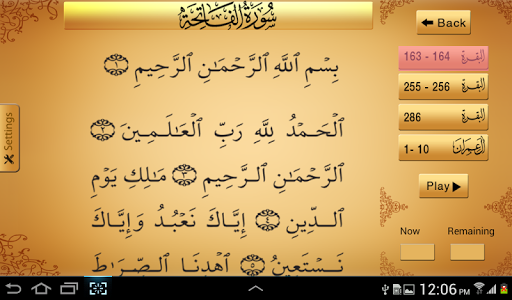 سُورَةُ الْفَاتِحَةِ
بِسْمِ ٱللَّهِ ٱلرَّحْمَـٰنِ ٱلرَّحِيمِ ١
ٱلْحَمْدُ لِلَّهِ رَبِّ ٱلْعَـٰلَمِينَ ٢
ٱلرَّحْمَـٰنِ ٱلرَّحِيمِ ٣ مَـٰلِكِ يَوْمِ
ٱلدِّينِ ٤ إِيَّاكَ نَعْبُدُ وَإِيَّاكَ
نَسْتَعِينُ ٥ ٱهْدِنَا ٱلصِّرَٰطَ
Settings
Back
163 - 164 البقرة
255 - 256 البقرة
286 البقرة
1- 10 آل عمران
Play
Now
Remaining
12:06 PM